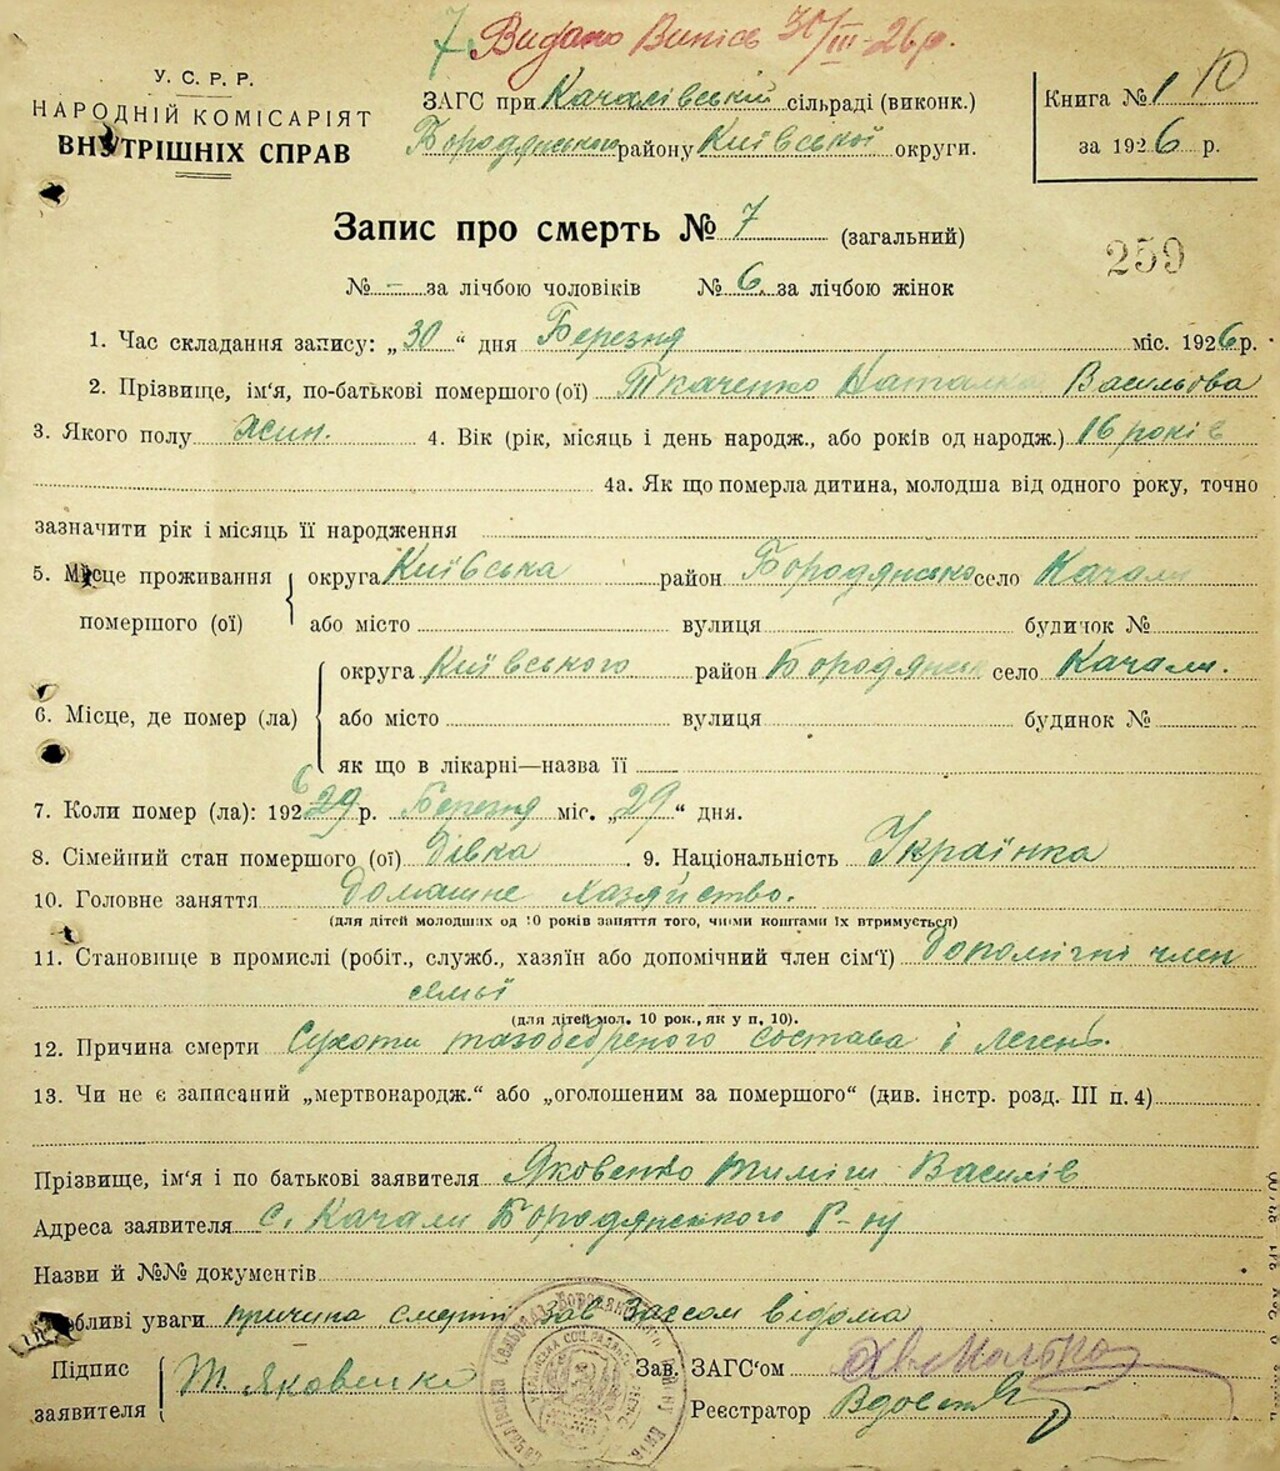 7 Видано Випісь 30/III-26р.
У. С. Р. Р.
НАРОДНІЙ КОМІСАРІЯТ
ВНУТРІШНІХ СПРАВ
ЗАГС при Качалівській сільраді (виконк.)
Бородянського району Київської округи.
Книга № 1 10
за 1926 р.
Запис про смерть № 7 (загальний)
259
№ - за лічбою чоловіків № 6 за лічбою жінок
1. Час складання запису: „30“ дня Березня міс. 1926 р.
2. Прізвище, ім'я, по-батькові помершого (ої) Ткаченко Наталка Васильова
3. Якого полу жин. 4. Вік (рік, місяць і день народж., або років од народж.) 16 років
4а. Як що померла дитина, молодша від одного року, точно
зазначити рік і місяць її народження
5. Місце проживання помершого (ої) округа Київська район Бородянсько село Качали
або місто вулиця будинок №
6. Місце, де помер (ла) округа Київського район Бородянськ село Качали.
або місто вулиця будинок №
як що в лікарні—назва її
7. Коли помер (ла): 1926 29 р. Березня міс. „29“ дня.
8. Сімейний стан помершого (ої) Дівка 9. Національність Українка
10. Головне заняття Домашне хазяйство.
(для дітей молодших од 10 років заняття того, чиїми коштами їх втримується)
11. Становище в промислі (робіт., служб., хазяїн або допомічний член сім'ї) Допомічні член
семьї
(для дітей мол. 10 рок., як у п. 10).
12. Причина смерти Сухоти тазобедреного состава і легень.
13. Чи не є записаний „мертвонародж.“ або „оголошеним за помершого“ (див. інстр. розд. III п. 4)
Прізвище, ім'я і по батькові заявителя Яковенко Тиміш Василів
Адреса заявителя с. Качали Бородянського Р-ну
Назви й №№ документів
Особліві уваги причина смерті зав Загсом відома
Підпис заявителя Т. Яковенко
Зав. ЗАГС'ом
Реєстратор